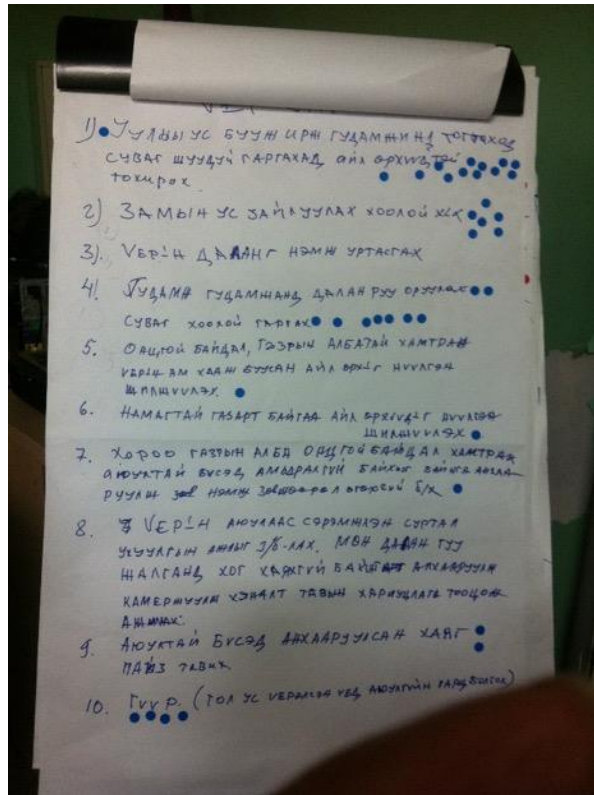 1) Уулын ус бууж ирж гудамжинд тогтоход
суваг шуудуй гаргахад айл өрхүүдтэй
тохирох.
2) Замын ус зайлуулах хоолой хийх
3). Үерийн даланг нэмж уртасгах
4. Гудамж гудамжанд далан руу оруулах
суваг хоолой гаргах
5. Онцгой байдал, газрын албатай хамтран
үерийн ам хааж буусан айл өрхийг нүүлгэн
шилжүүлэх.
6. Намагтай газарт байгаа айл өрхүүдийг нүүлгэн
шилжүүлэх
7. Хороо газрын алба онцгой байдал хамтран
аюултай бүсэд амьдралгүй байхыг байнга анхаа-
руулж нэмж зөвшөөрөл олгохгүй б/х
8. Үерийн аюулаас сэрэмжлэн сурталчилгааны ажлыг з/б-лах. Мөн далан гуу
жалганд хог хаяхгүй байхыг анхааруулж
камержуулж хяналт тавьж хариуцлага тооцож
ажиллах.
9. Аюултай бүсэд анхааруулсан хаяг
пайз тавих.
10. Гүүр. (гол ус үерлэсэн үед аюулгүйн гарц болгох)